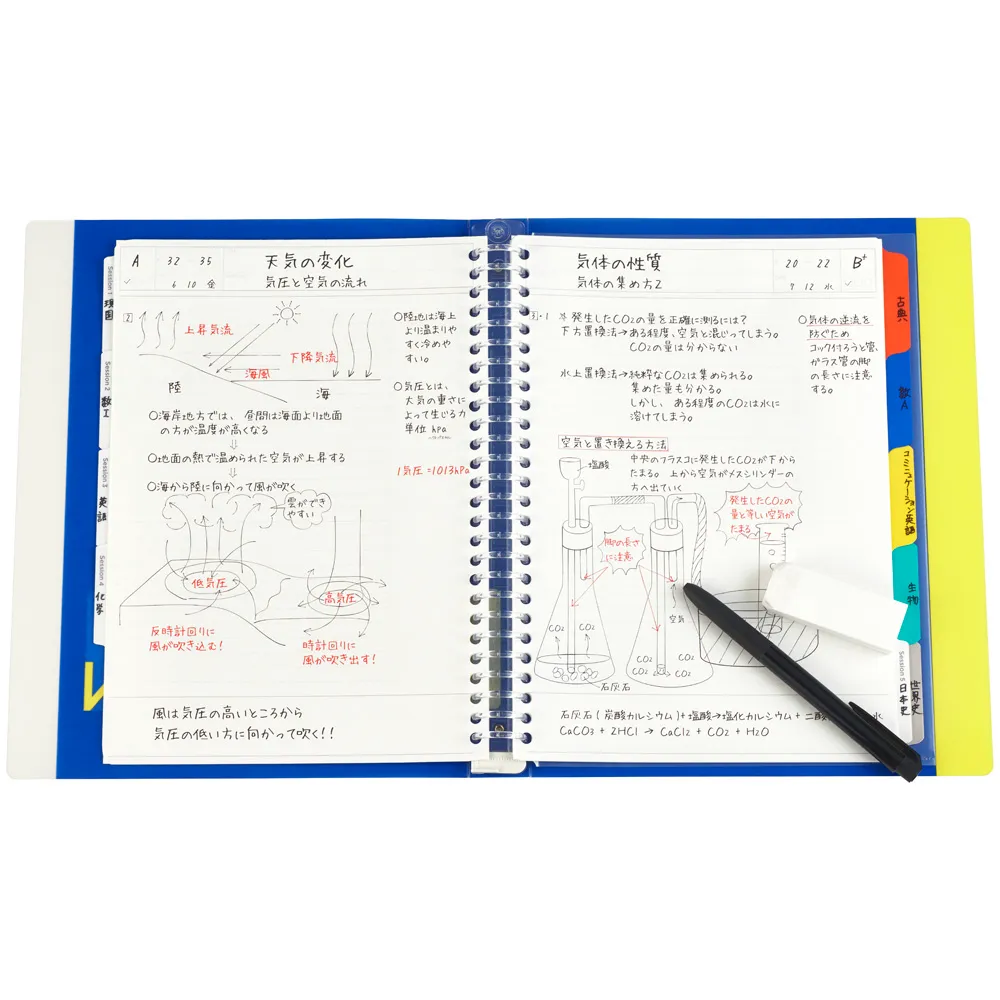 A
32 35
天気の変化
6 10 金
気圧と空気の流れ
2
上昇気流
下降気流
海風
陸
海
○海岸地方では、昼間は海面より地面
の方が温度が高くなる
⇩
○地面の熱で温められた空気が上昇する
⇩
○海から陸に向かって風が吹く
雲ができ
やすい
低気圧
高気圧
反時計回りに
風が吹き込む!
時計回りに
風が吹き出す!
○陸地は海上
より温まりや
すく冷めや
すい。
○気圧とは、
大気の重さに
よって生じる力
単位 hPa
1気圧=1013hPa
風は気圧の高いところから
気圧の低い方に向かって吹く!!
気体の性質
20 22
B+
気体の集め方2
9 12 水
3・1 ※発生したCO2の量を正確に測るには?
下方置換法→ある程度、空気と混じってしまう。
CO2の量は分からない
水上置換法→純粋なCO2は集められる。
集めた量も分かる。
しかし、ある程度のCO2は水に
溶けてしまう。
○気体の逆流を
防ぐため
コック付ろうと管、
ガラス管の脚
の長さに注意
する。
空気と置き換える方法
塩酸
中央のフラスコに発生したCO2が下から
たまる。上から空気がメスシリンダーの
方へ出ていく
発生したCO2の
量と等しい空気が
たまる
脚の長さ
に注意
空気
CO2 CO2
CO2 CO2
CO2 CO2
石灰石
石灰石(炭酸カルシウム)+塩酸→塩化カルシウム+二酸 水
CaCO3 + 2HCl → CaCl2 + CO2 + H2O
Session 1
現国
Session 2
数I
Session 3
英語
Session 4
化学
古典
数A
コミュニケーション英語
生物
Session 5
世界史
日本史